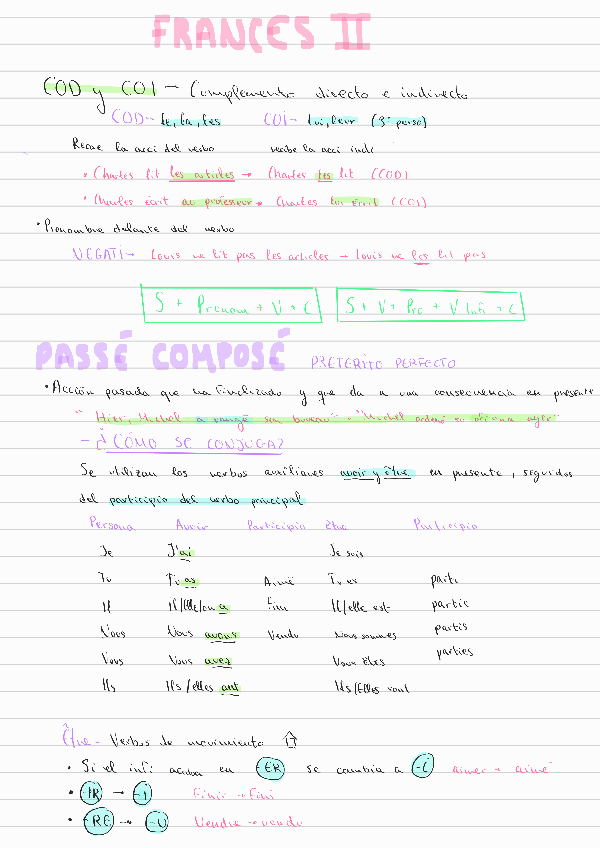 FRANCES II
COD y COI - Complemento directo e indirecto
COD- le, la, les COI- lui, leur (3ª perso)
Recae la acci del verbo recibe la acci indi
• Charles lit les articles → Charles les lit (COD)
• Charles écrit au professeur → Charles lui écrit (COI)
• Pronombre delante del verbo
NEGATI→ Louis ne lit pas les articles → Louis ne les lit pas
S + Pronom + V + C S + V + Pro + V Infi + C
PASSÉ COMPOSÉ PRETERITO PERFECTO
• Acción pasada que ha finalizado y que da a una consecuencia en presente
"Hier, Michel a rangé son bureau" - "Michel ordenó su oficina ayer"
- ¿COMO SE CONJUGA?
Se utilizan los verbos auxiliares avoir y être en presente, seguidos
del participio del verbo principal
Persona Avoir Participio être Participio
Je J'ai Je suis
Tu Tu as Aimé Tu es parti
Il Il/Elle/on a Fini Il/elle est partie
Nous Nous avons Vendu Nous sommes partis
Vous Vous avez Vous êtes parties
Ils Ils/elles ont Ils/Elles sont
Être - Verbos de movimiento
• Si el infi acaba en -ER se cambia a -é aimer → aimé
• IR → -i Finir → Fini
• -RE → -U Vendre → vendu